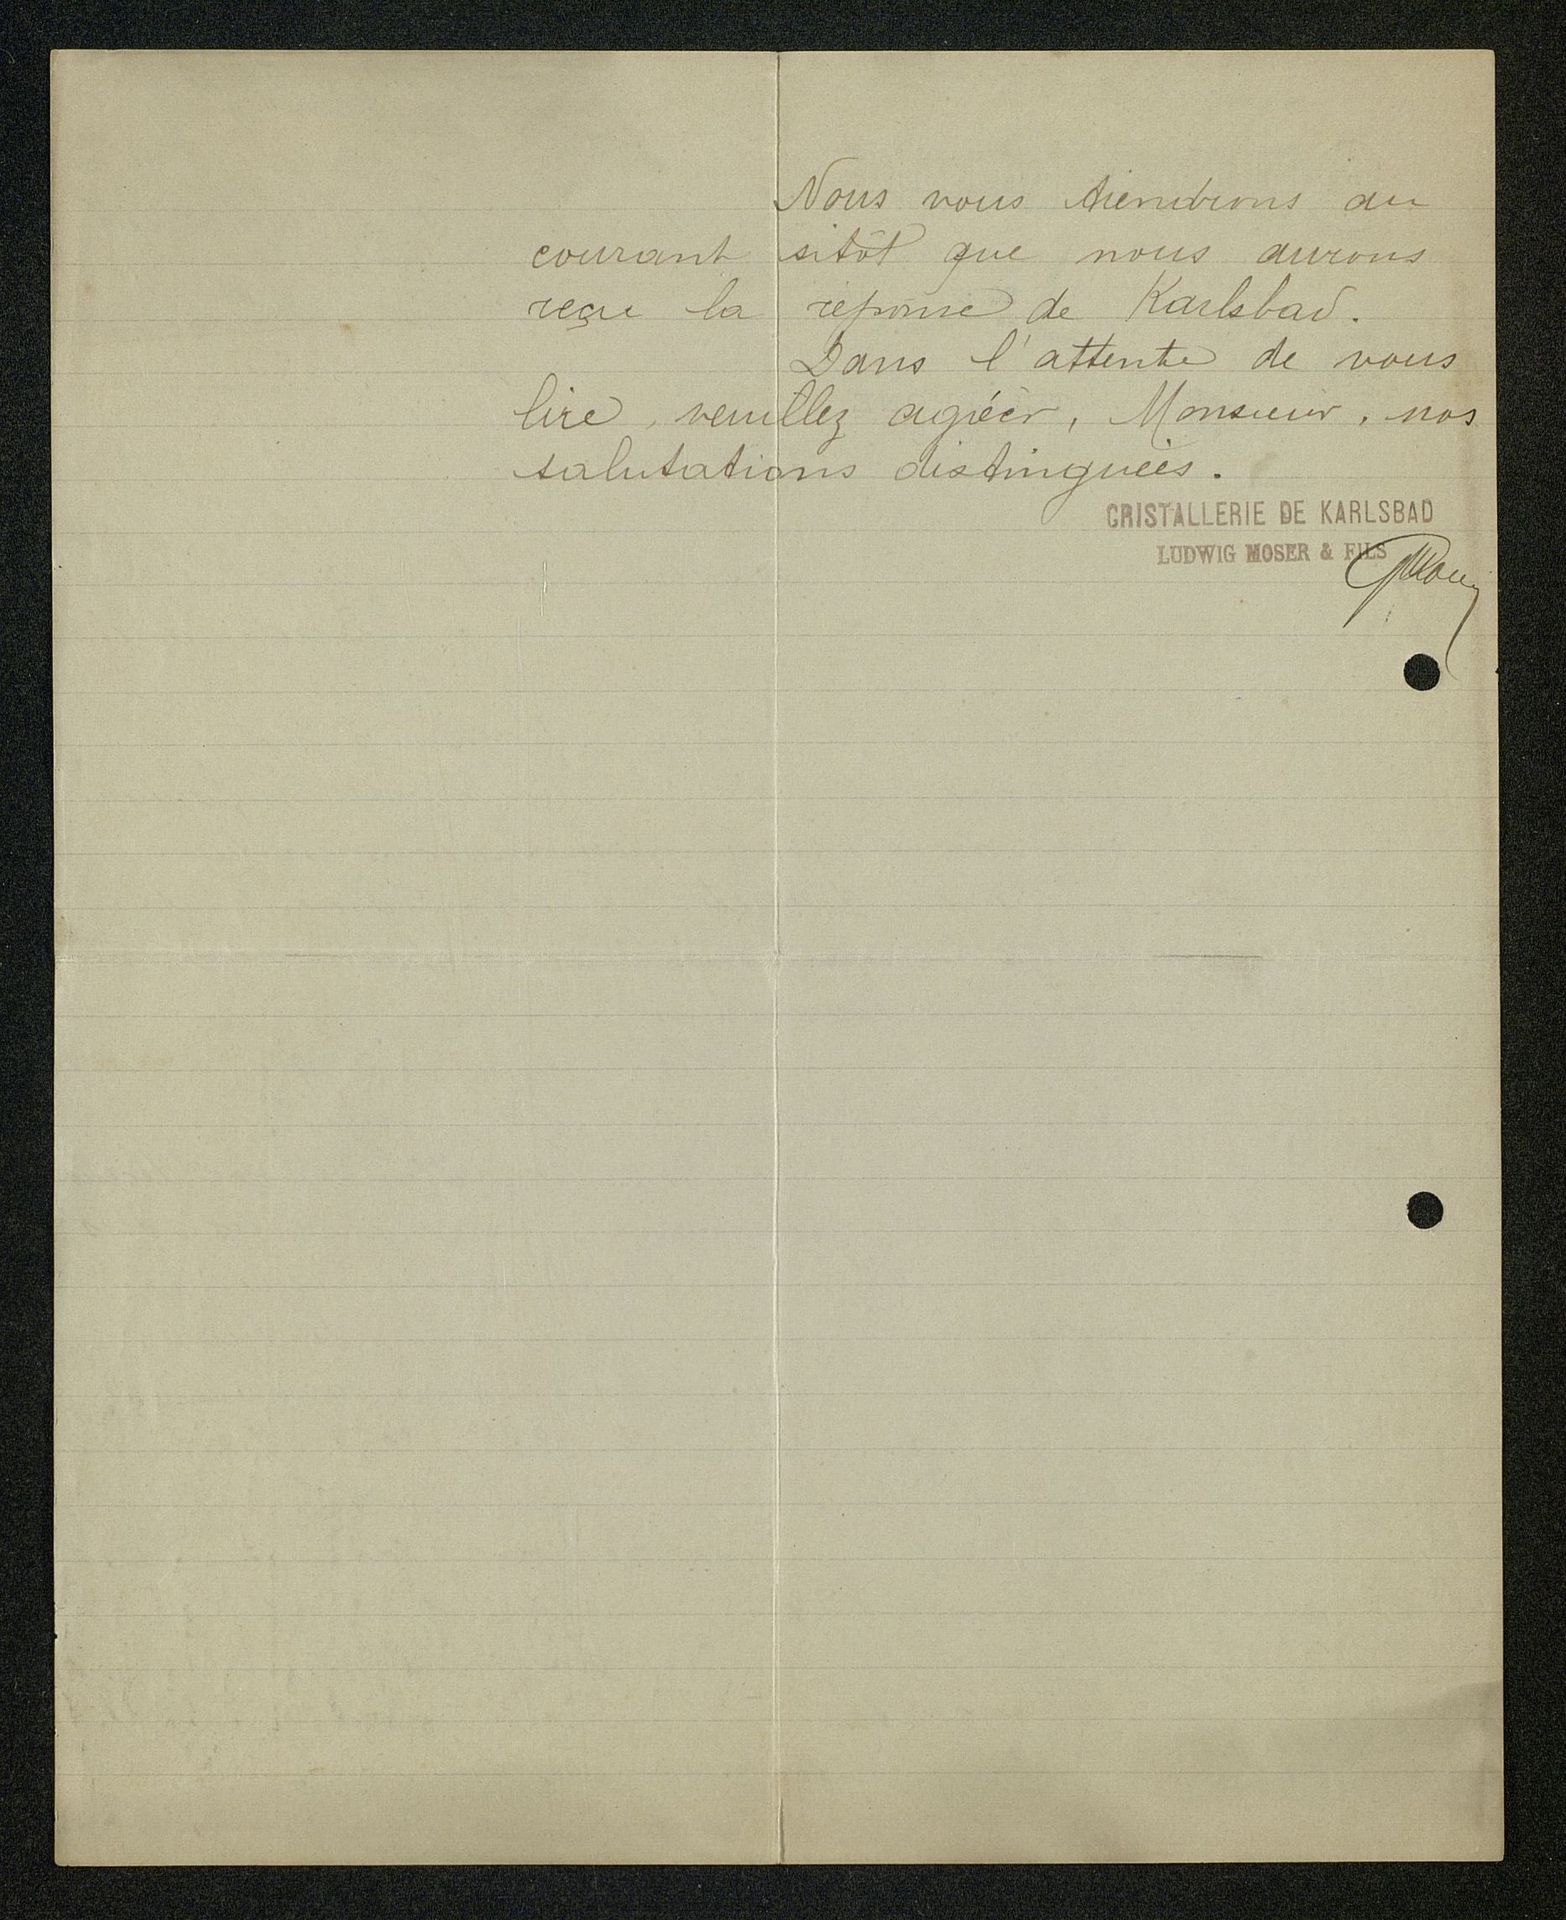 Nous vous tiendrons au
courant sitôt que nous aurons
reçu la réponse de Karlsbad.
Dans l'attente de vous
lire, veuillez agréer, Monsieur, nos
salutations distinguées.
CRISTALLERIE DE KARLSBAD
LUDWIG MOSER & FILS